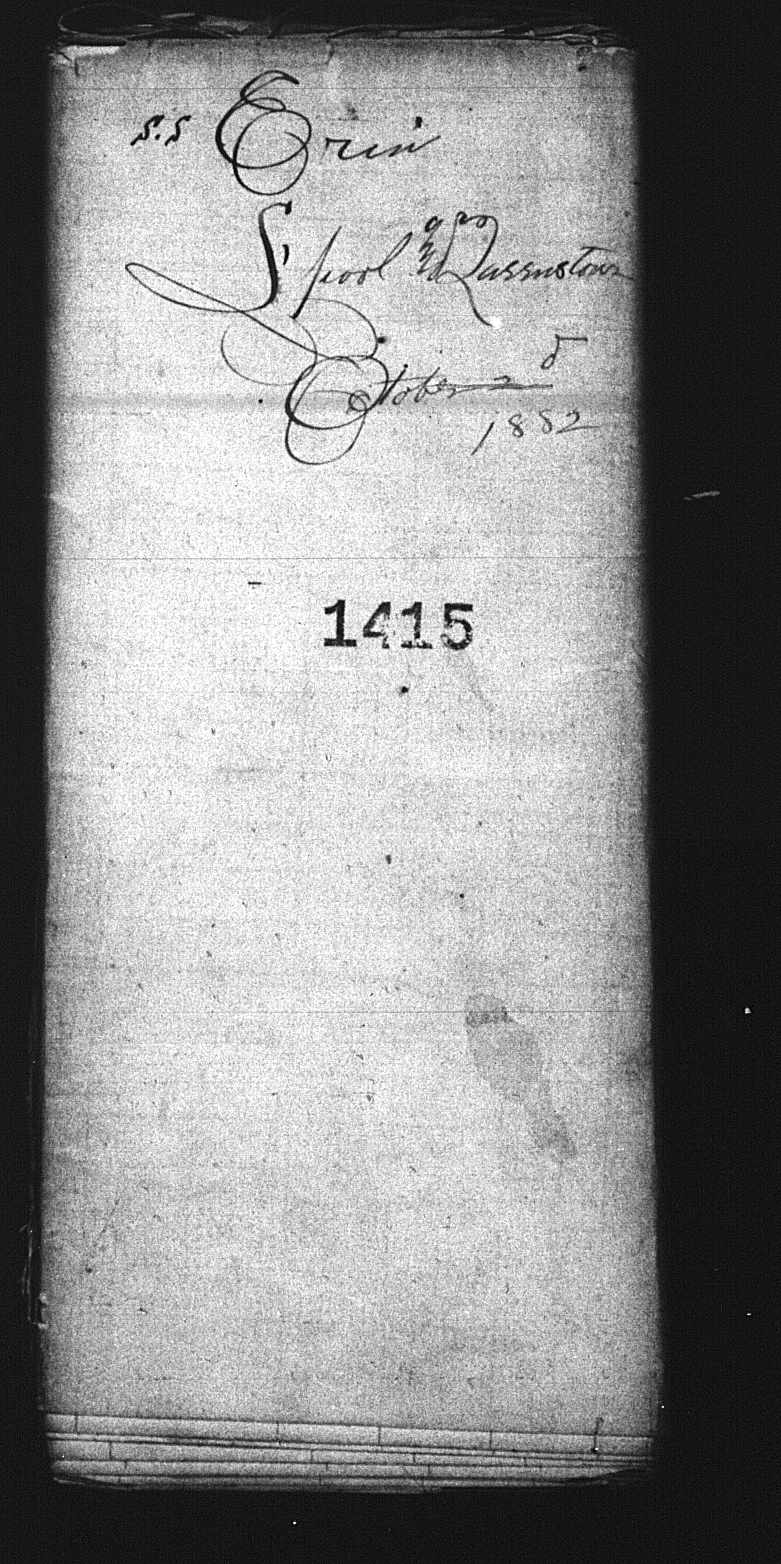 S.S Erin
L'pool & Queenstown
October 2 d
1882
1415